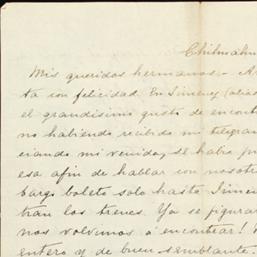 Chihuahu
Mis queridos hermanos.- A
ta con felicidad. En Jimenez
el grandisimo gusto de encont
no habiendo recibido mi telegra
ciando mi venida, se habia
esa afin de hablar con nosotr
bargo boleto solo hasta Jimen
tran los trenes. Ya se figurar
nos volvimos á encontrar!
entero y de buen semblante.